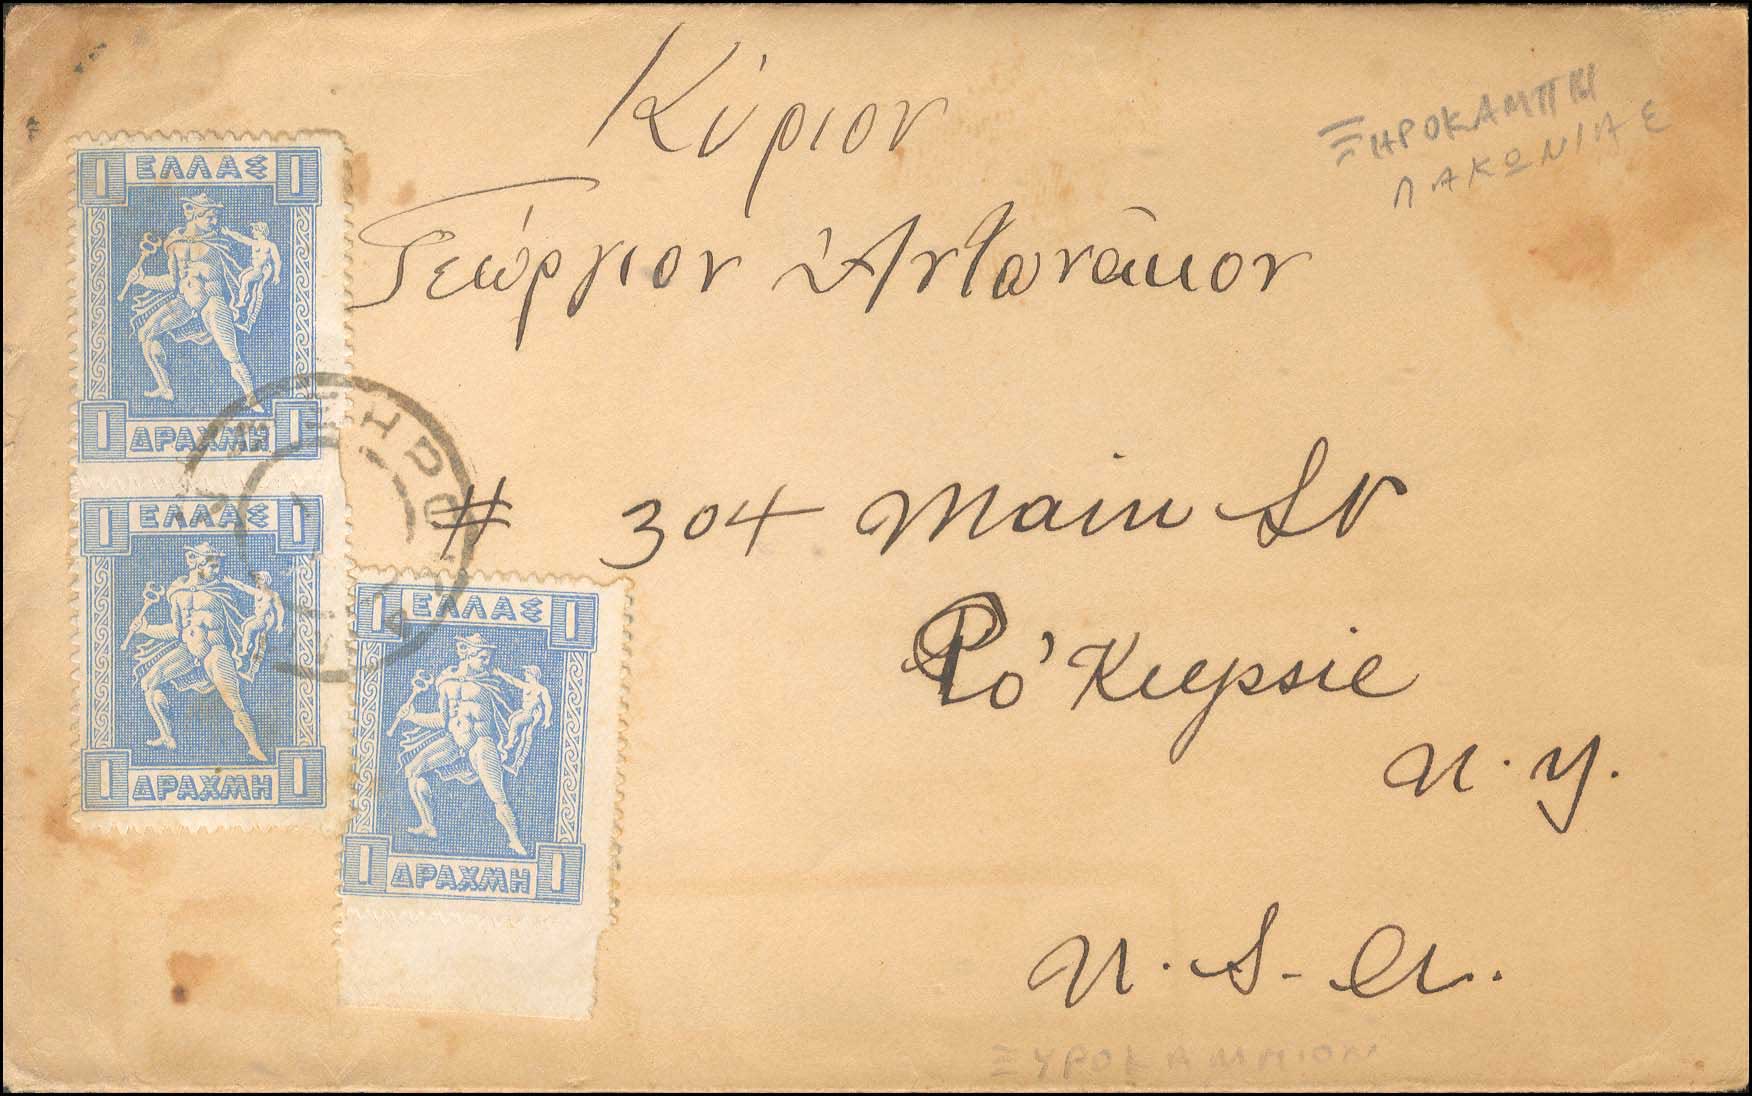 Κύριον
ΞΗΡΟΚΑΜΠΙ
ΛΑΚΩΝΙΑΣ
Γεώργιον Ἀντωνάκιον
# 304 Main St
Po'Keepsie
N. Y.
U. S. A.
1 ΕΛΛΑΣ 1
1 ΔΡΑΧΜΗ 1
1 ΕΛΛΑΣ 1
1 ΔΡΑΧΜΗ 1
1 ΕΛΛΑΣ 1
1 ΔΡΑΧΜΗ 1
ΞΥΡΟΚΑΜΠΙΟΝ